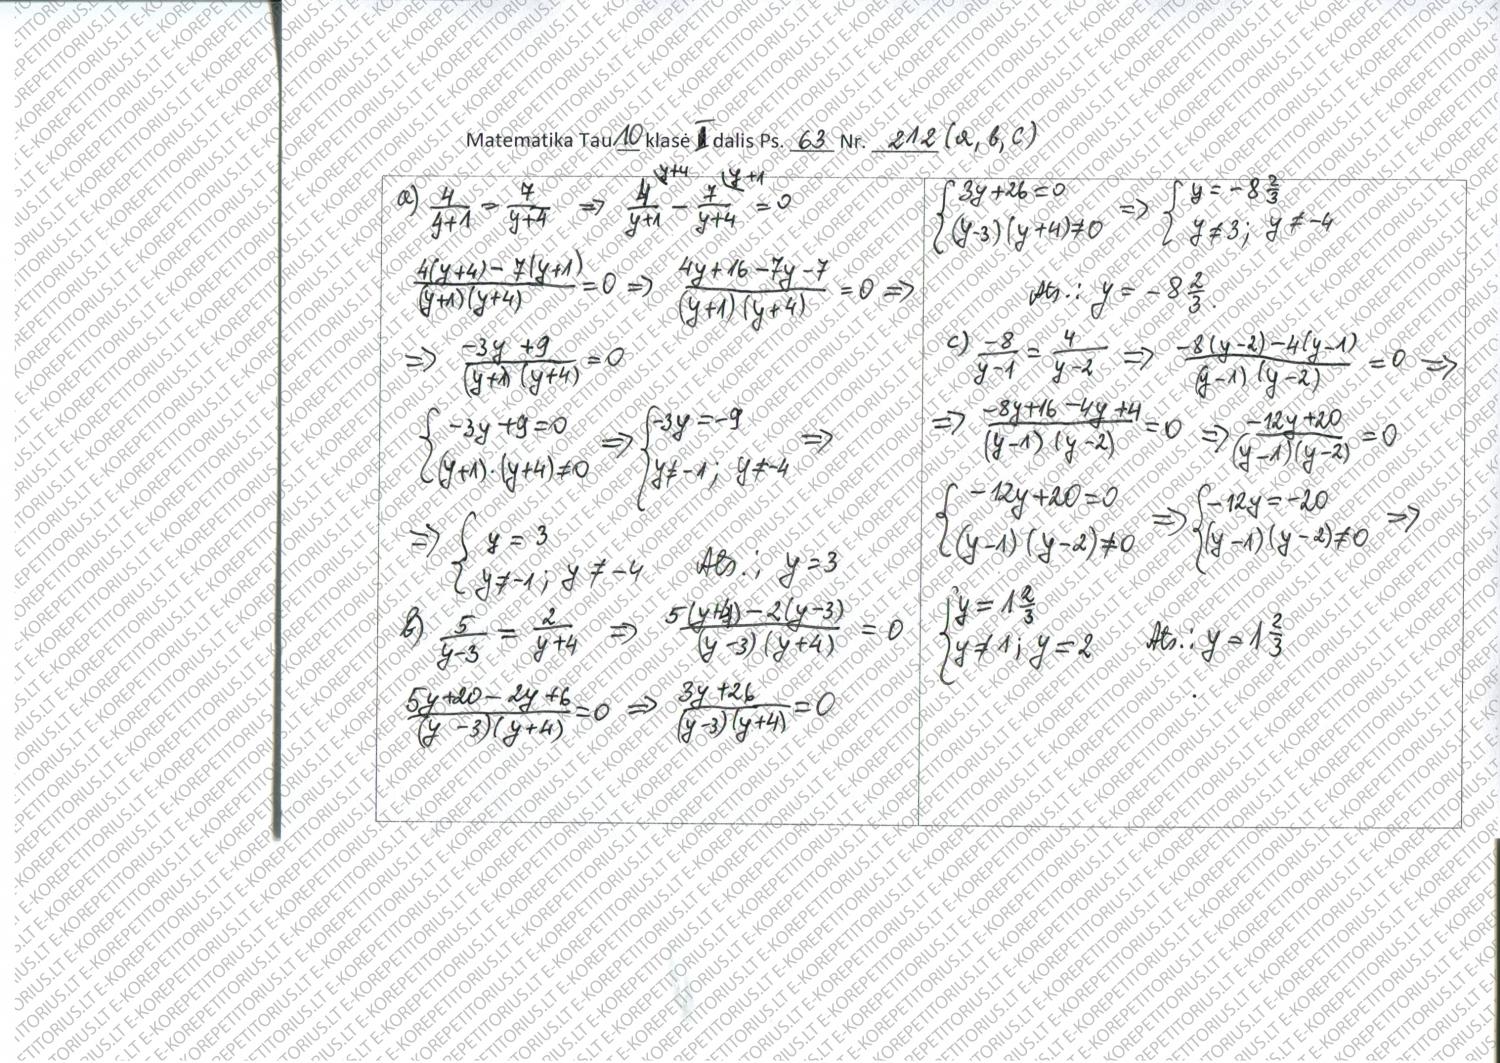 Matematika Tau 10 klasė I dalis Ps. 63 Nr. 212 (a, b, c)
a) 4/(y+1) = 7/(y+4) => 4/(y+1) - 7/(y+4) = 0
(4(y+4) - 7(y+1))/((y+1)(y+4)) = 0 => (4y+16-7y-7)/((y+1)(y+4)) = 0 =>
=> (-3y+9)/((y+1)(y+4)) = 0
{ -3y+9=0 => { -3y=-9 =>
(y+1)·(y+4)≠0 y≠-1; y≠-4
=> { y = 3
y≠-1; y≠-4 Ats.: y=3
b) 5/(y-3) = 2/(y+4) => (5(y+4)-2(y-3))/((y-3)(y+4)) = 0
(5y+20-2y+6)/((y-3)(y+4)) = 0 => (3y+26)/((y-3)(y+4)) = 0
{ 3y+26=0 => { y = -8 2/3
(y-3)(y+4)≠0 y≠3; y≠-4
Ats.: y = -8 2/3.
c) -8/(y-1) = 4/(y-2) => (-8(y-2)-4(y-1))/((y-1)(y-2)) = 0 =>
=> (-8y+16-4y+4)/((y-1)(y-2)) = 0 => (-12y+20)/((y-1)(y-2)) = 0
{ -12y+20=0 => { -12y=-20 =>
(y-1)(y-2)≠0 (y-1)(y-2)≠0
{ y = 1 2/3
y≠1; y=2 Ats.: y=1 2/3
E-KOREPETITORIUS.LT